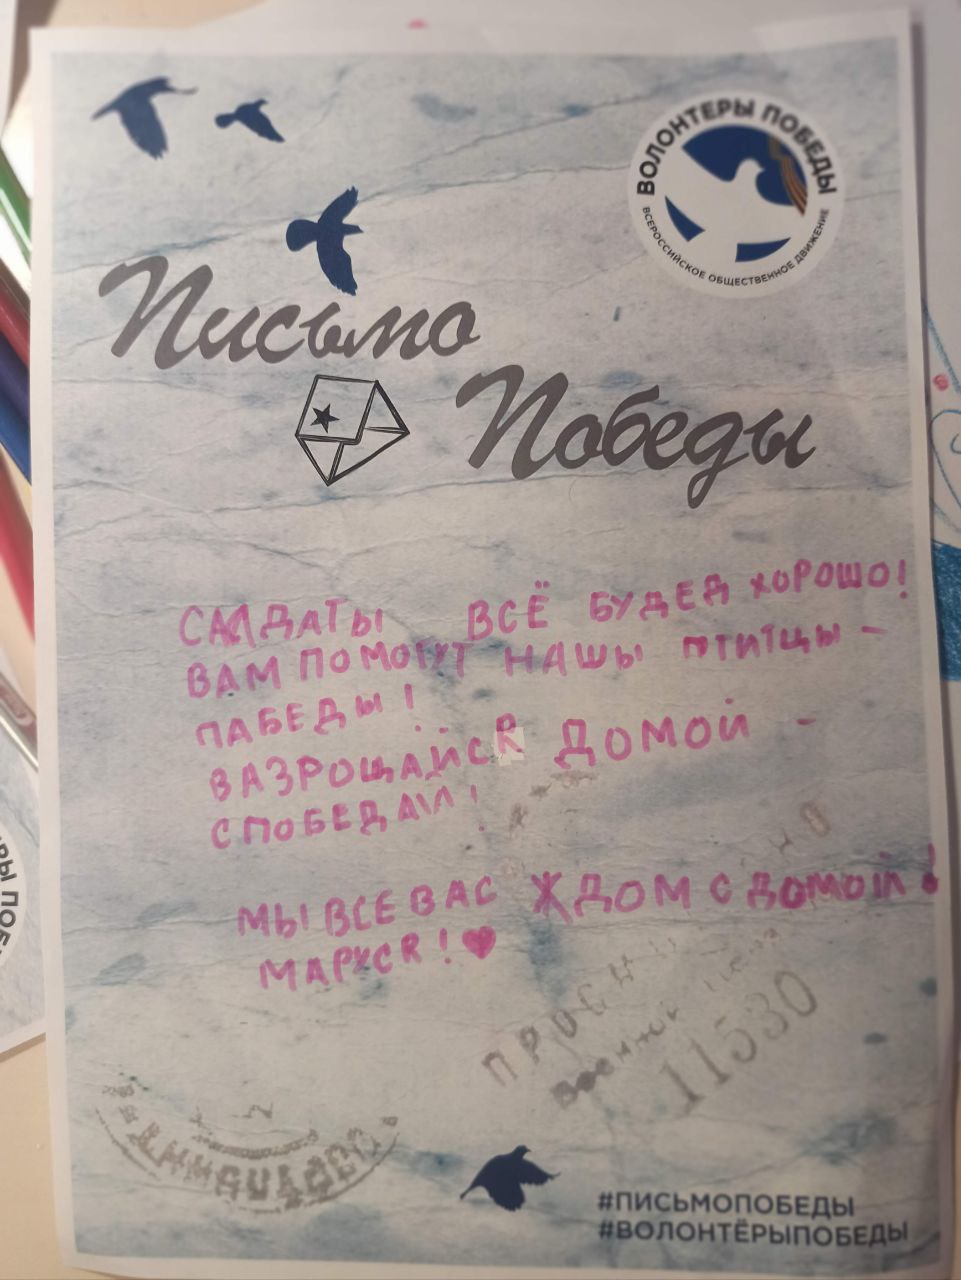 ВОЛОНТЕРЫ ПОБЕДЫ
ВСЕРОССИЙСКОЕ ОБЩЕСТВЕННОЕ ДВИЖЕНИЕ
Письмо
Победы
САЛДАТЫ ВСЁ БУДЕД ХОРОШО!
ВАМ ПОМОГУТ НАШЫ ПТИТЦЫ -
ПАБЕДЫ!
ВАЗРОЩАЙСЯ ДОМОЙ -
С ПОБЕДАЙ!
МЫ ВСЕ ВАС ЖДОМ С ДОМОЙ!
МАРУСЯ! ♥
11530
#ПИСЬМОПОБЕДЫ
#ВОЛОНТЁРЫПОБЕДЫ